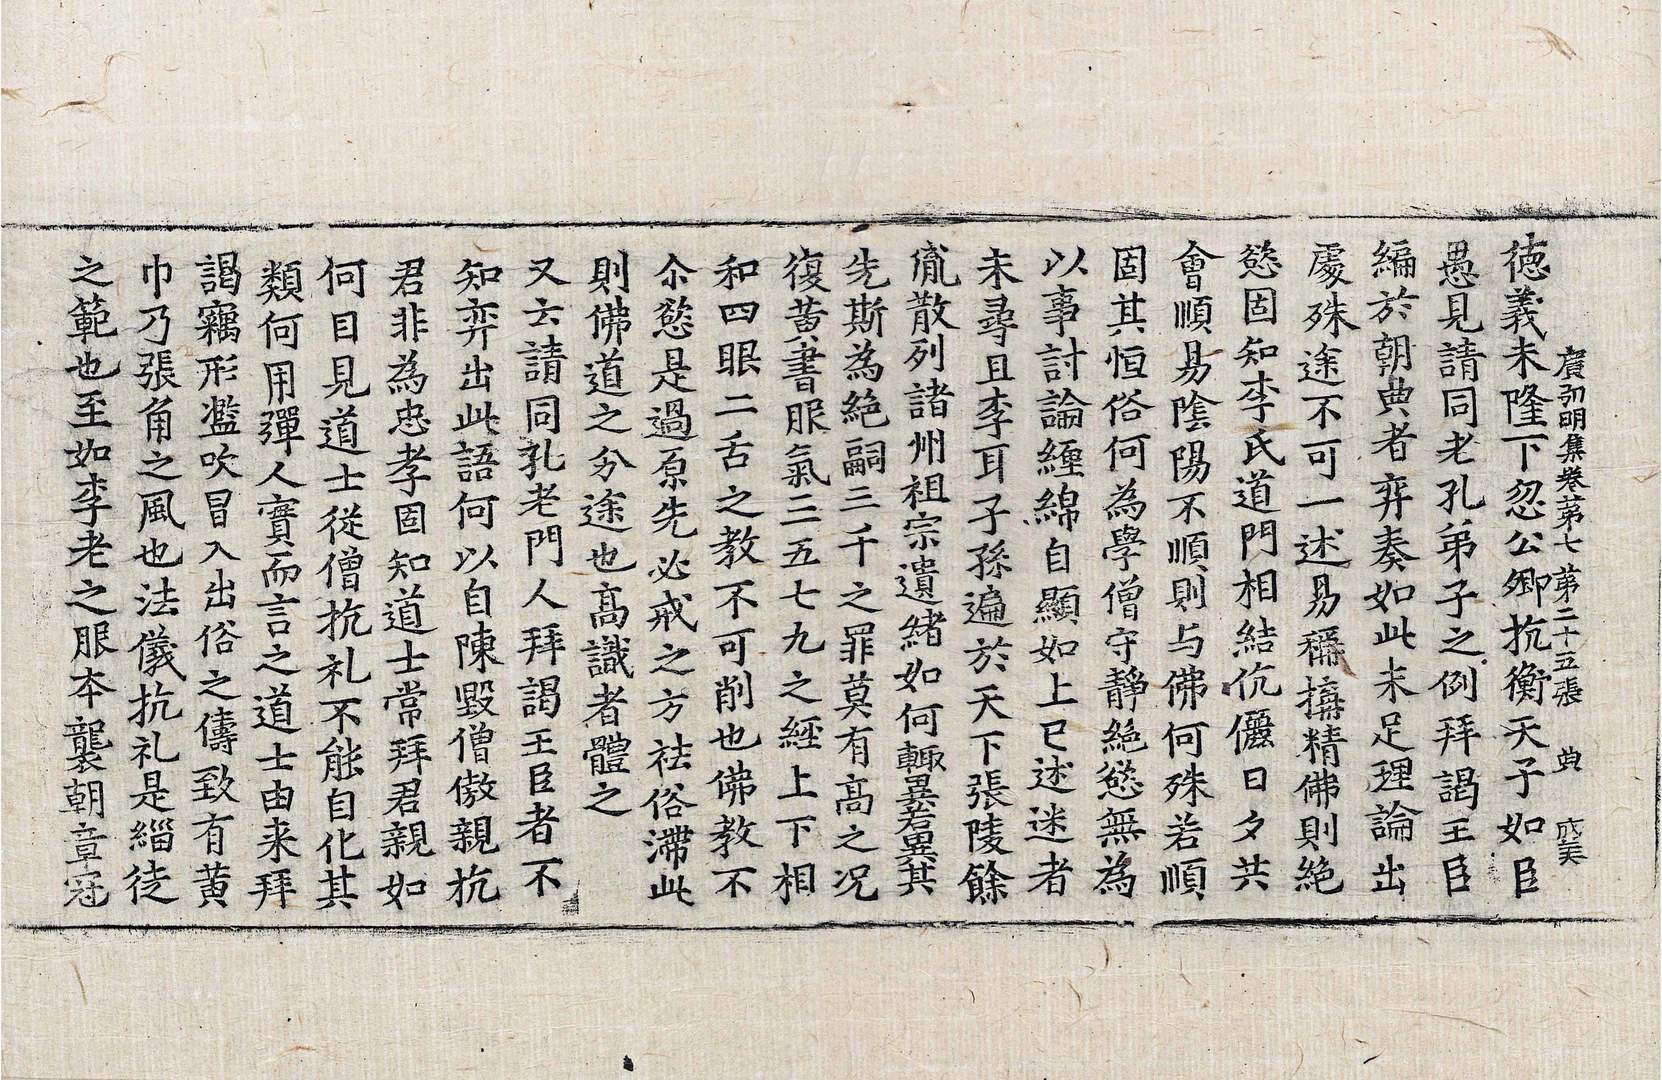 廣弘明集卷第七 第二十五張 典
德義未隆下忽公卿抗衡天子如臣
愚見請同老孔弟子之例拜謁王臣
編於朝典者弈奏如此未足理論出
處殊途不可一述易稱搆精佛則絶
慾固知李氏道門相結伉儷日夕共
會順易隂陽不順則与佛何殊若順
固其恒俗何為學僧守靜絶慾無為
以事討論纏綿自顯如上已述迷者
未尋且李耳子孫遍於天下張陵餘
胤散列諸州祖宗遺緒如何輙異若異其
先斯為絶嗣三千之罪莫有高之况
復黄書服氣三五七九之經上下相
和四眼二舌之教不可削也佛教不
尒慾是過原先必戒之方袪俗滯此
則佛道之分途也高識者體之
又云請同孔老門人拜謁王臣者不
知弈出此語何以自陳毀僧傲親抗
君非為忠孝固知道士常拜君親如
何目見道士從僧抗礼不能自化其
類何用彈人實而言之道士由来拜
謁竊形濫吹冒入出俗之儔致有黄
巾乃張角之風也法儀抗礼是緇徒
之範也至如李老之服本襲朝章冠